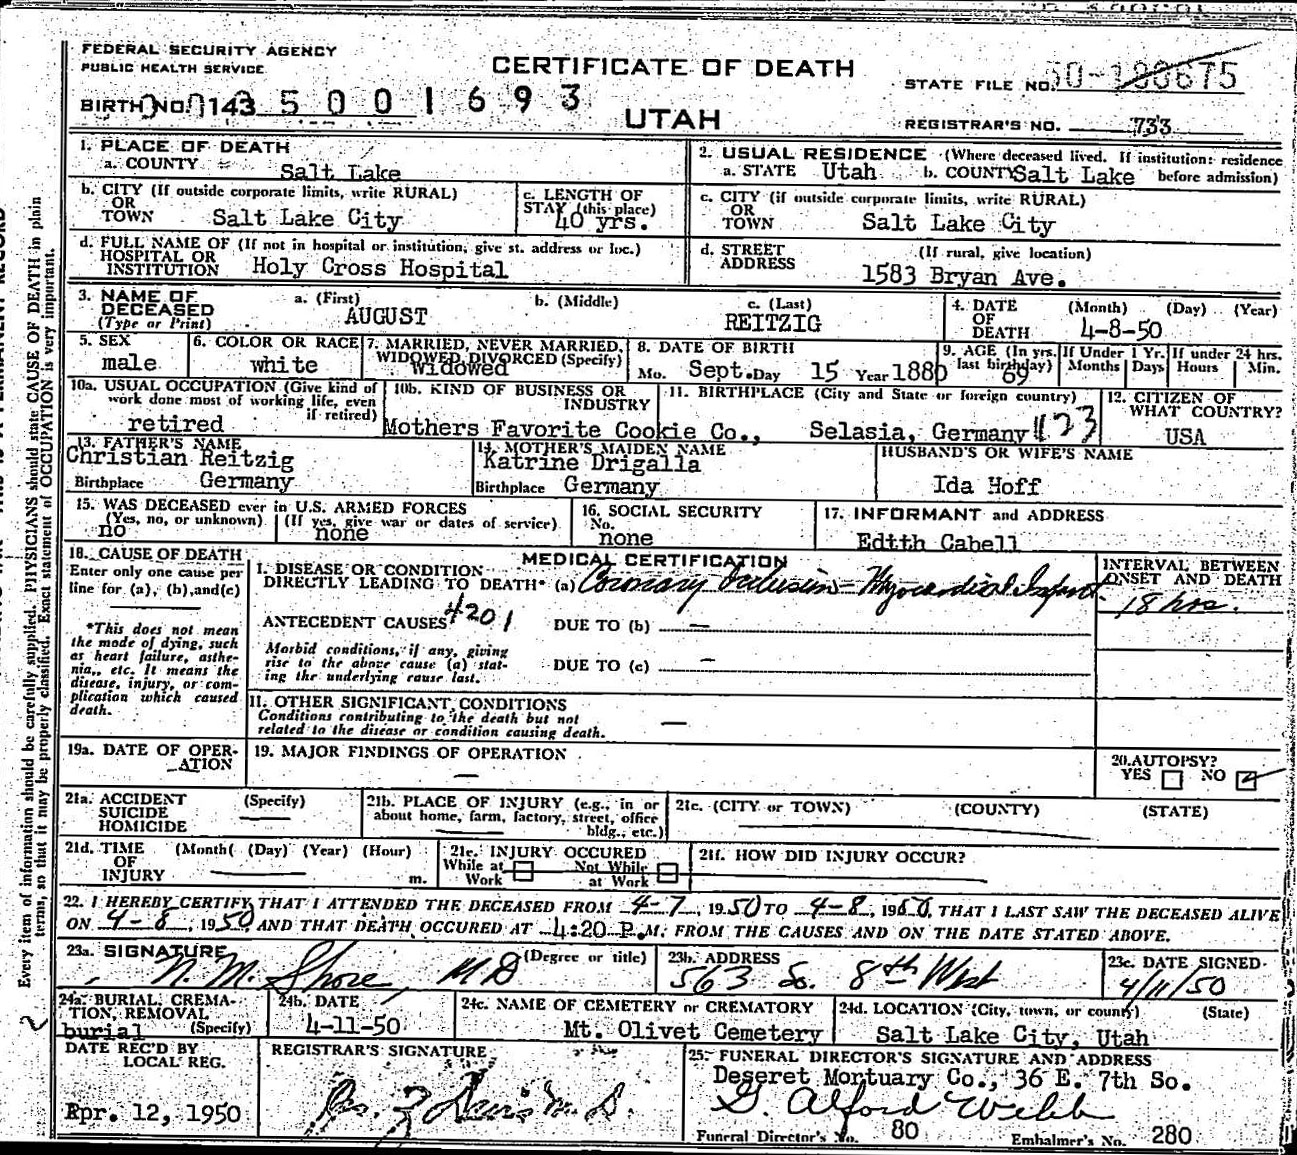 FEDERAL SECURITY AGENCY
PUBLIC HEALTH SERVICE
CERTIFICATE OF DEATH
UTAH
STATE FILE NO.
BIRTH NO. 143 5 0 0 1 6 9 3
REGISTRAR'S NO. 733
1. PLACE OF DEATH
a. COUNTY Salt Lake
2. USUAL RESIDENCE (Where deceased lived. If institution: residence before admission)
a. STATE Utah b. COUNTY Salt Lake
b. CITY (If outside corporate limits, write RURAL)
OR
TOWN Salt Lake City
c. LENGTH OF
STAY (this place)
40 yrs.
c. CITY (if outside corporate limits, write RURAL)
OR
TOWN Salt Lake City
d. FULL NAME OF (If not in hospital or institution, give st. address or loc.)
HOSPITAL OR
INSTITUTION Holy Cross Hospital
d. STREET (If rural, give location)
ADDRESS 1583 Bryan Ave.
3. NAME OF
DECEASED
(Type or Print)
a. (First) AUGUST
b. (Middle)
c. (Last) REITZIG
4. DATE (Month) (Day) (Year)
OF
DEATH 4-8-50
5. SEX
male
6. COLOR OR RACE
white
7. MARRIED, NEVER MARRIED,
WIDOWED DIVORCED (Specify)
Widowed
8. DATE OF BIRTH
Mo. Sept. Day 15 Year 1880
9. AGE (In yrs. last birthday)
69
If Under 1 Yr.
Months Days
If under 24 hrs.
Hours Min.
10a. USUAL OCCUPATION (Give kind of
work done most of working life, even
if retired)
retired
10b. KIND OF BUSINESS OR
INDUSTRY
Mothers Favorite Cookie Co.,
11. BIRTHPLACE (City and State or foreign country)
Selasia, Germany
12. CITIZEN OF
WHAT COUNTRY?
USA
13. FATHER'S NAME
Christian Reitzig
Birthplace Germany
14. MOTHER'S MAIDEN NAME
Katrine Drigalla
Birthplace Germany
HUSBAND'S OR WIFE'S NAME
Ida Hoff
15. WAS DECEASED ever in U.S. ARMED FORCES
(Yes, no, or unknown) (If yes, give war or dates of service)
no none
16. SOCIAL SECURITY
No.
none
17. INFORMANT and ADDRESS
Edith Cabell
18. CAUSE OF DEATH
Enter only one cause per
line for (a), (b), and (c)
*This does not mean
the mode of dying, such
as heart failure, asthe-
nia, etc. It means the
disease, injury, or com-
plication which caused
death.
MEDICAL CERTIFICATION
I. DISEASE OR CONDITION
DIRECTLY LEADING TO DEATH* (a) Coronary Occlusion - Myocardial Infarct.
INTERVAL BETWEEN
ONSET AND DEATH
18 hrs.
ANTECEDENT CAUSES 4201 DUE TO (b) —
Morbid conditions, if any, giving
rise to the above cause (a) stat-
ing the underlying cause last.
DUE TO (c) —
II. OTHER SIGNIFICANT CONDITIONS
Conditions contributing to the death but not
related to the disease or condition causing death.
—
19a. DATE OF OPER-
ATION
19. MAJOR FINDINGS OF OPERATION
—
20. AUTOPSY?
YES NO
21a. ACCIDENT (Specify)
SUICIDE
HOMICIDE
21b. PLACE OF INJURY (e.g., in or
about home, farm, factory, street, office
bldg., etc.)
21c. (CITY or TOWN) (COUNTY) (STATE)
21d. TIME (Month) (Day) (Year) (Hour)
OF
INJURY m.
21e. INJURY OCCURED
While at Work Not While at Work
21f. HOW DID INJURY OCCUR?
22. I HEREBY CERTIFY THAT I ATTENDED THE DECEASED FROM 4-7, 1950 TO 4-8, 1950, THAT I LAST SAW THE DECEASED ALIVE
ON 4-8, 1950, AND THAT DEATH OCCURED AT 4:20 P.M. FROM THE CAUSES AND ON THE DATE STATED ABOVE.
23a. SIGNATURE (Degree or title)
N. M. Shore, MD
23b. ADDRESS
563 So. 8th West
23c. DATE SIGNED
4/11/50
24a. BURIAL, CREMA-
TION, REMOVAL
(Specify)
burial
24b. DATE
4-11-50
24c. NAME OF CEMETERY or CREMATORY
Mt. Olivet Cemetery
24d. LOCATION (City, town, or county) (State)
Salt Lake City, Utah
DATE REC'D BY
LOCAL REG.
Apr. 12, 1950
REGISTRAR'S SIGNATURE
25. FUNERAL DIRECTOR'S SIGNATURE AND ADDRESS
Deseret Mortuary Co., 36 E. 7th So.
G. Alford Webb
Funeral Director's No. 80 Embalmer's No. 280
Every item of information should be carefully supplied. PHYSICIANS should state CAUSE OF DEATH in plain
terms, so that it may be properly classified. Exact statement of OCCUPATION is very important.